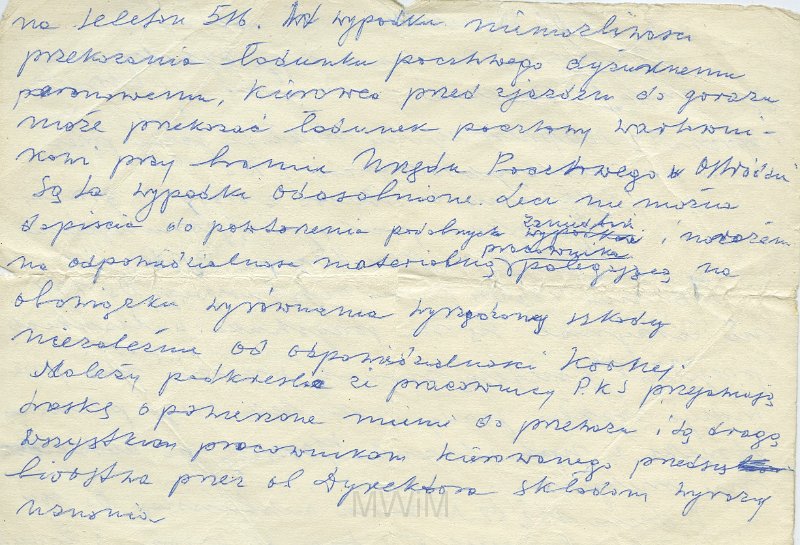 na telefon 516. W wypadku niemożliwości
przekazania ładunku pocztwego dyżurnemu
peronowemu, Kierowca przed zjazdem do garażu
może przekazać ładunek pocztowy wartowni-
kowi przy bramie Urzędu Pocztowego w Ostródzie
Są to wypadki odosobnione. Lecz nie można
dopiścić do powtórzenia podobnych zaniedbań i narażenia
pracownika
na odpowiedzialność materialną polegającą na
obowiązku wyrównania wyrządzonej szkody
niezależnie od odpowiedzialności Karnej.
Należy podkreślić że pracownicy P.K.S przejawiają
troskę o powierzone mienie do przewozu i tą drogą
Wszystkim pracownikom Kierowanego przedsię
biorstwa przez ob Dyrektora składam wyrazy
uznania
MWiM